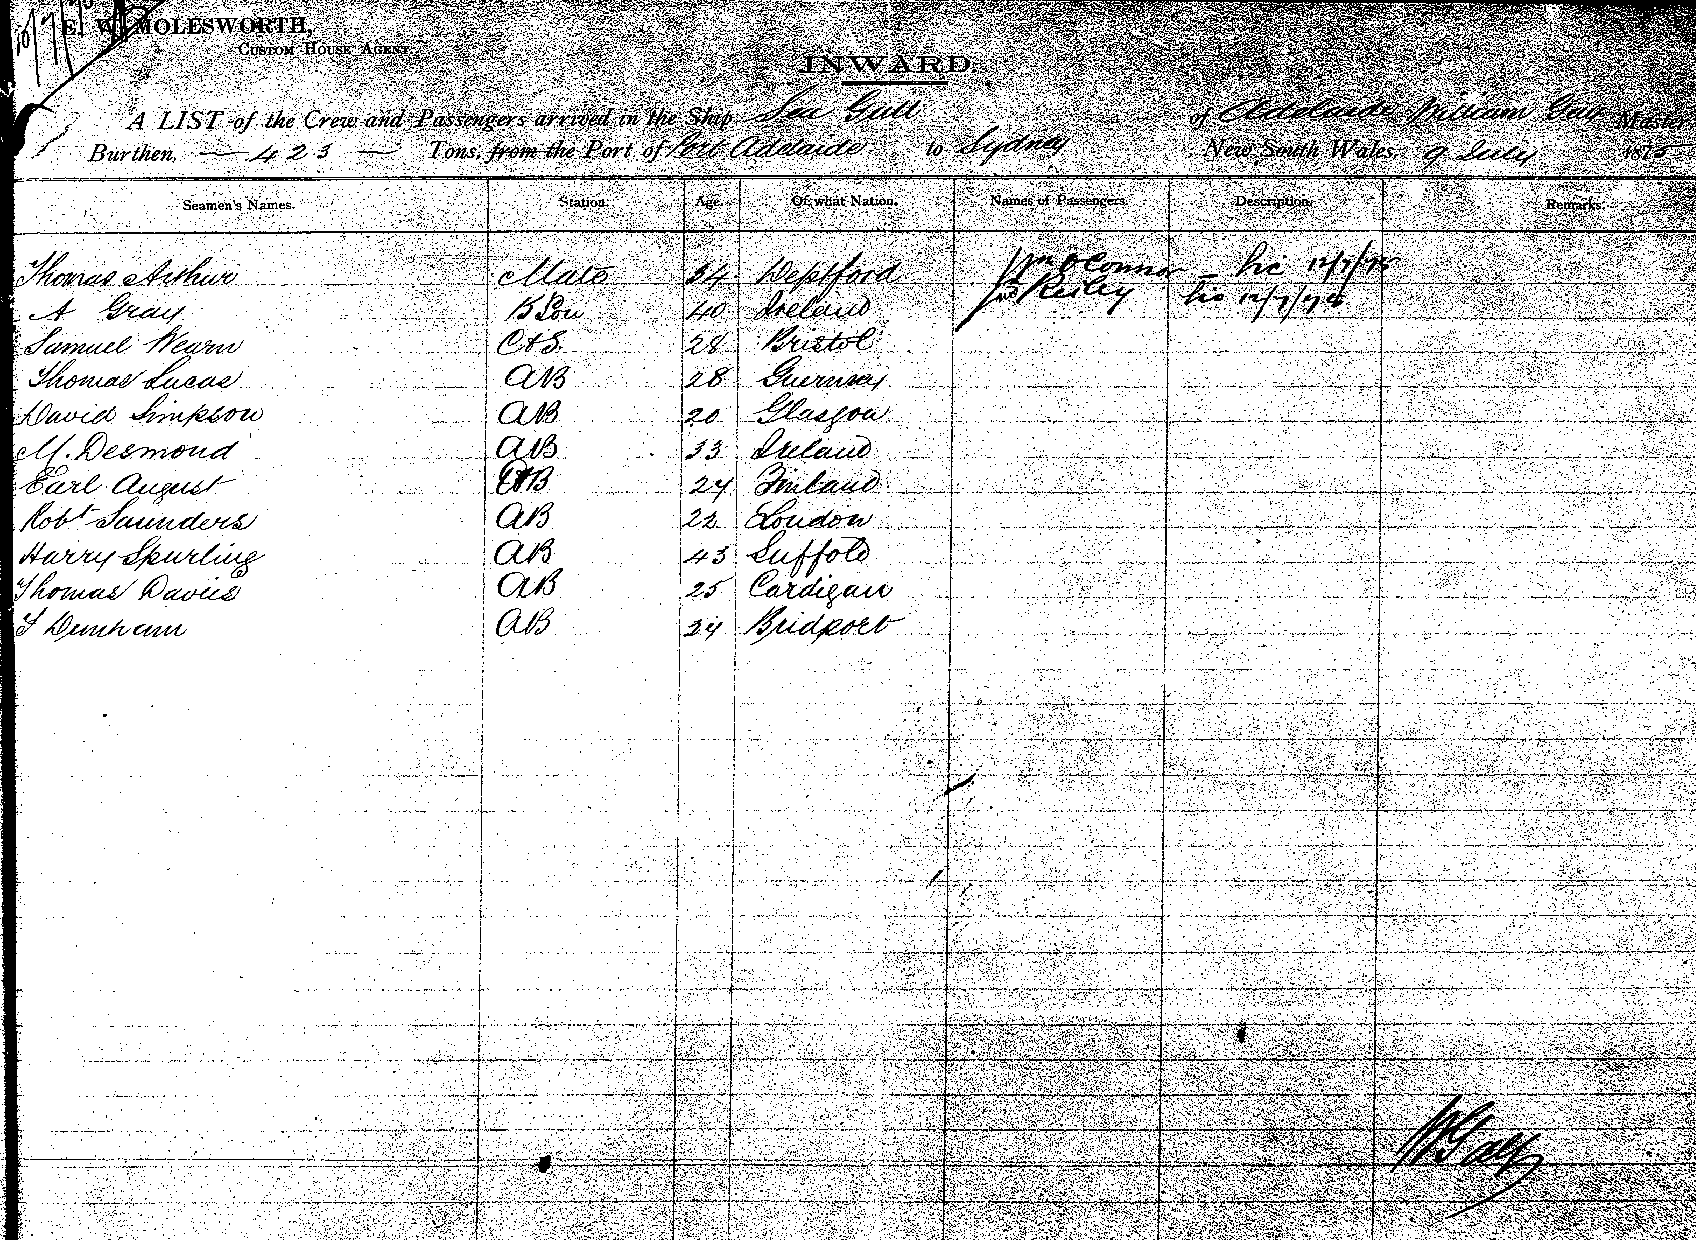 E. W. MOLESWORTH,
CUSTOM HOUSE AGENT.
INWARD.
A LIST of the Crew and Passengers arrived in the Ship Sea Gull of Adelaide William Master
Burthen, — 423 — Tons, from the Port of Port Adelaide to Sydney New South Wales, 9 July 1875
Seamen's Names. Station. Age. Of what Nation. Names of Passengers. Description. Remarks.
Thomas Arthur Mate 34 Deptford Wm O'Connor
A Gray 40 Ireland Reiley
Samuel Wearn C & S 28 Bristol
Thomas Lucas AB 28 Guernsey
David Simpson AB 20 Glasgow
M. Desmond AB 33 Ireland
Earl August AB 24 Finland
Robt Saunders AB 22 London
Harry Spurling AB 43 Suffolk
Thomas Davies AB 25 Cardigan
Denham AB 24 Bridport